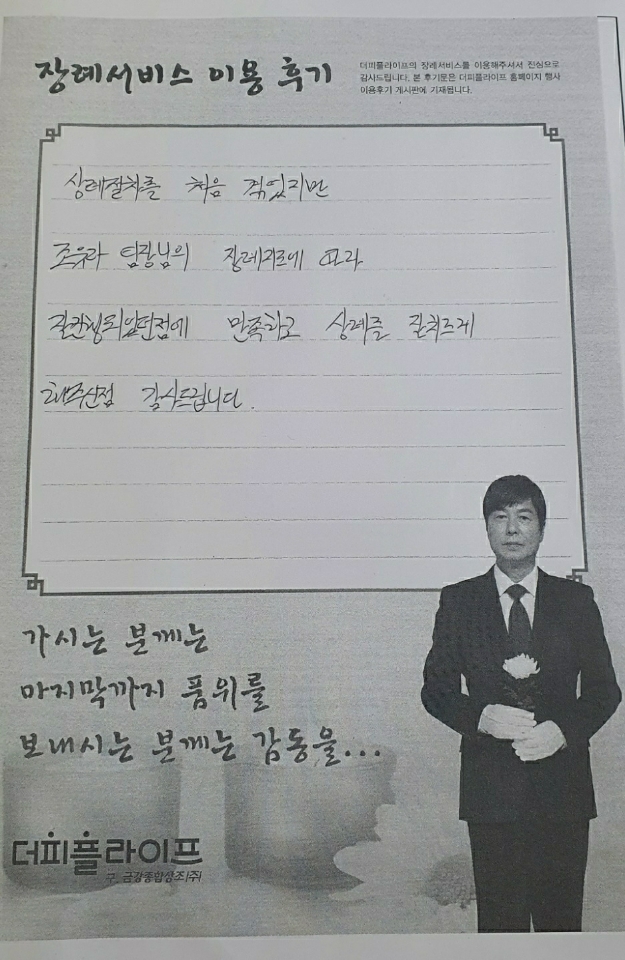 장례서비스 이용 후기
더피플라이프의 장례서비스를 이용해주셔서 진심으로
감사드립니다. 본 후기문은 더피플라이프 홈페이지 행사
이용후기 게시판에 기재됩니다.
상례절차를 처음 겪었지만
조유라 팀장님의 장례지도에 따라
잘진행되었던점에 만족하고 상례를 잘치르게
해주신점 감사드립니다.
가시는 분께는
마지막까지 품위를
보내시는 분께는 감동을...
더피플라이프
구. 금강종합상조(주)